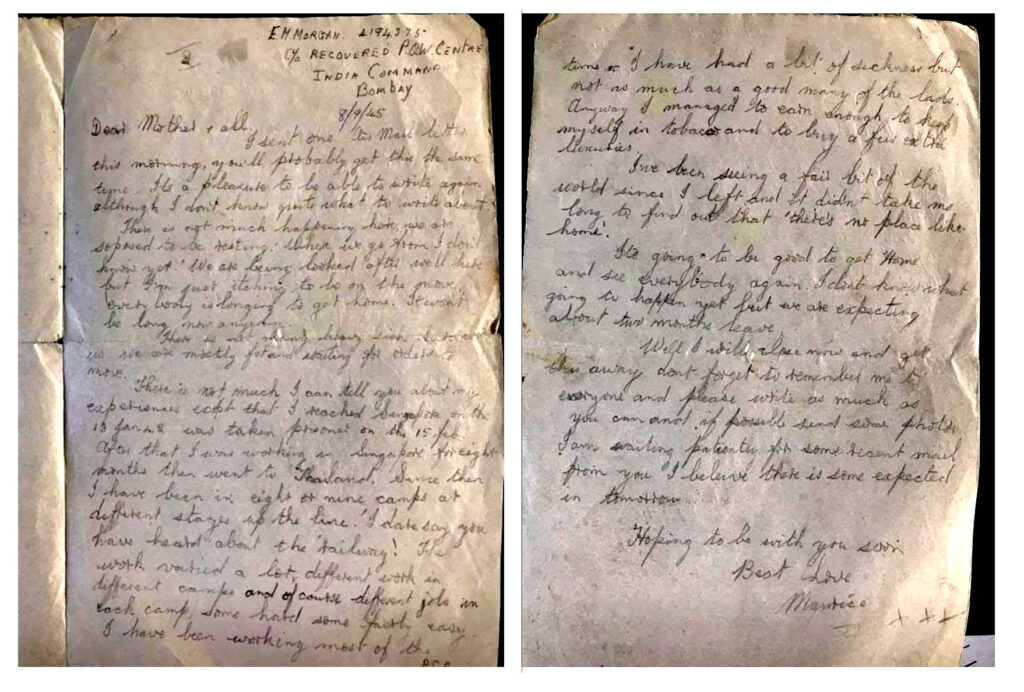 E.M. MORGAN. 4194375
c/o RECOVERED P.O.W. CENTRE
INDIA COMMAND
BOMBAY
8/9/45
Dear Mother & all,
I sent one Air Mail letter
this morning, you'll probably get this the same
time. Its a pleasure to be able to write again
although I don't know quite what to write about.
There is not much happening here, we are
soposed to be resting. When we go from I don't
know yet. We are being looked after well here
but I'm just itching to be on the move,
everybody is longing to get home. It won't
be long now anyway.
There is not many heavy sick
us, we are mostly fit and waiting for orders to
move.
There is not much I can tell you about my
experiences except that I reached Singapore on the
13 Jan 42 was taken prisoner on the 15 feb.
After that I was working in Singapore for eight
months then went to Thailand. Since then
I have been in eight or nine camps at
different stages up the line. I dare say you
have heard about the 'railway'! The
work varied a lot, different work in
different camps and of course different jobs in
each camp, some hard some fairly easy
I have been working most of the
time. I have had a bit of sickness but
not as much as a good many of the lads.
Anyway I managed to earn enough to keep
myself in tobacco and to buy a few extra
luxuries.
I've been seeing a fair bit of the
world since I left and it didn't take me
long to find out that 'there's no place like
home'.
Its going to be good to get Home
and see everybody again. I dont know what
going to happen yet but we are expecting
about two months leave.
Well I will close now and get
this away dont forget to remember me to
everyone and please write as much as
you can and if possible send some photos
I am waiting patiently for some recent mail
from you I beleive there is some expected
in tomorrow.
Hoping to be with you soon
Best Love
Maurice
x x x